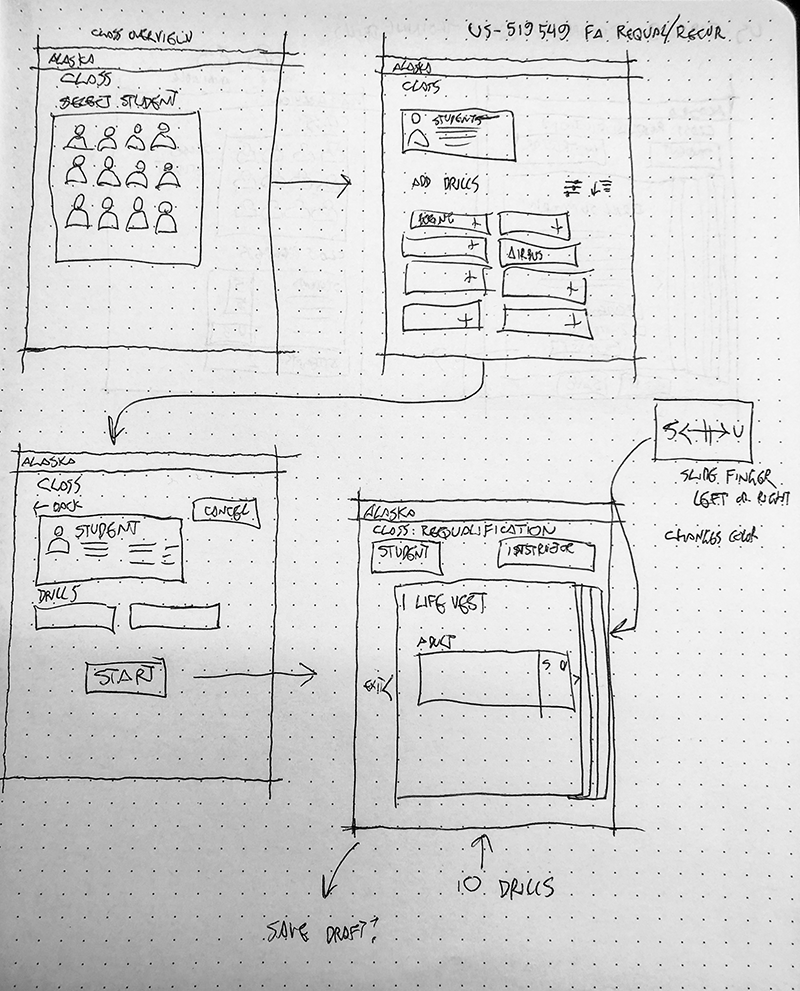 CLASS OVERVIEW
US-519549 FA REQUAL/RECUR
ALASKA
CLASS
SELECT STUDENT
ALASKA
CLASS
STUDENTS
ADD DRILLS
BOEING +
+
+
AIRBUS
+
+
+
+
S <-||-> U
SLIDE FINGER
LEFT OR RIGHT
CHANGES COLOR
ALASKA
CLASS
← BACK
CANCEL
STUDENT
DRILLS
START
ALASKA
CLASS: REQUALIFICATION
STUDENT
INSTRUCTOR
1 LIFE VEST
ADULT
S U
EXIT <
>
10 DRILLS
SAVE DRAFT?